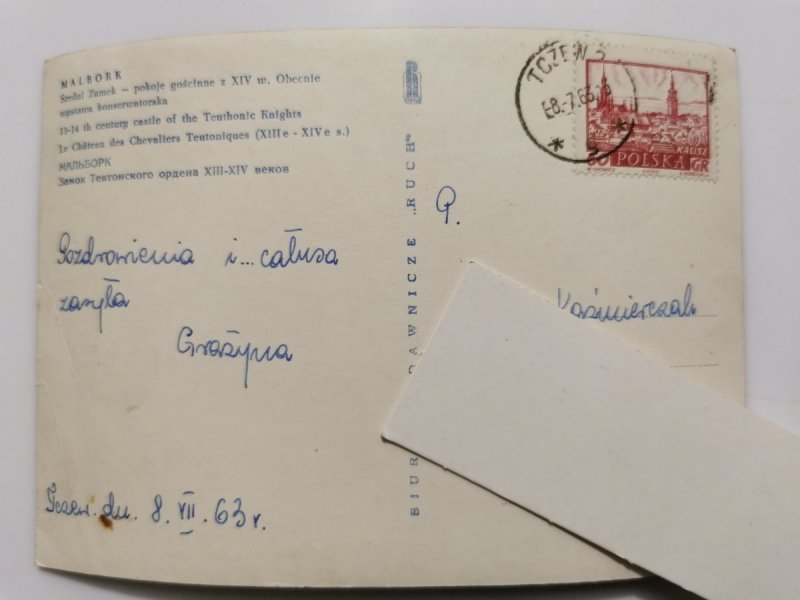 MALBORK
Średni Zamek — pokoje gościnne z XIV w. Obecnie
wystawa konserwatorska
13-14 th century castle of the Teuthonic Knights
Le Château des Chevaliers Teutoniques (XIIIe - XIVe s.)
МАЛЬБОРК
Замок Тевтонского ордена XIII-XIV веков
Pozdrowienia i... całusa
zasyła
Grażyna
Tczew. dn. 8. VII. 63 r.
BIUR
AWNICZE „RUCH”
TCZEW 2
-8.-7.63
2
KALISZ
60 POLSKA GR
P.
Kaźmierczak